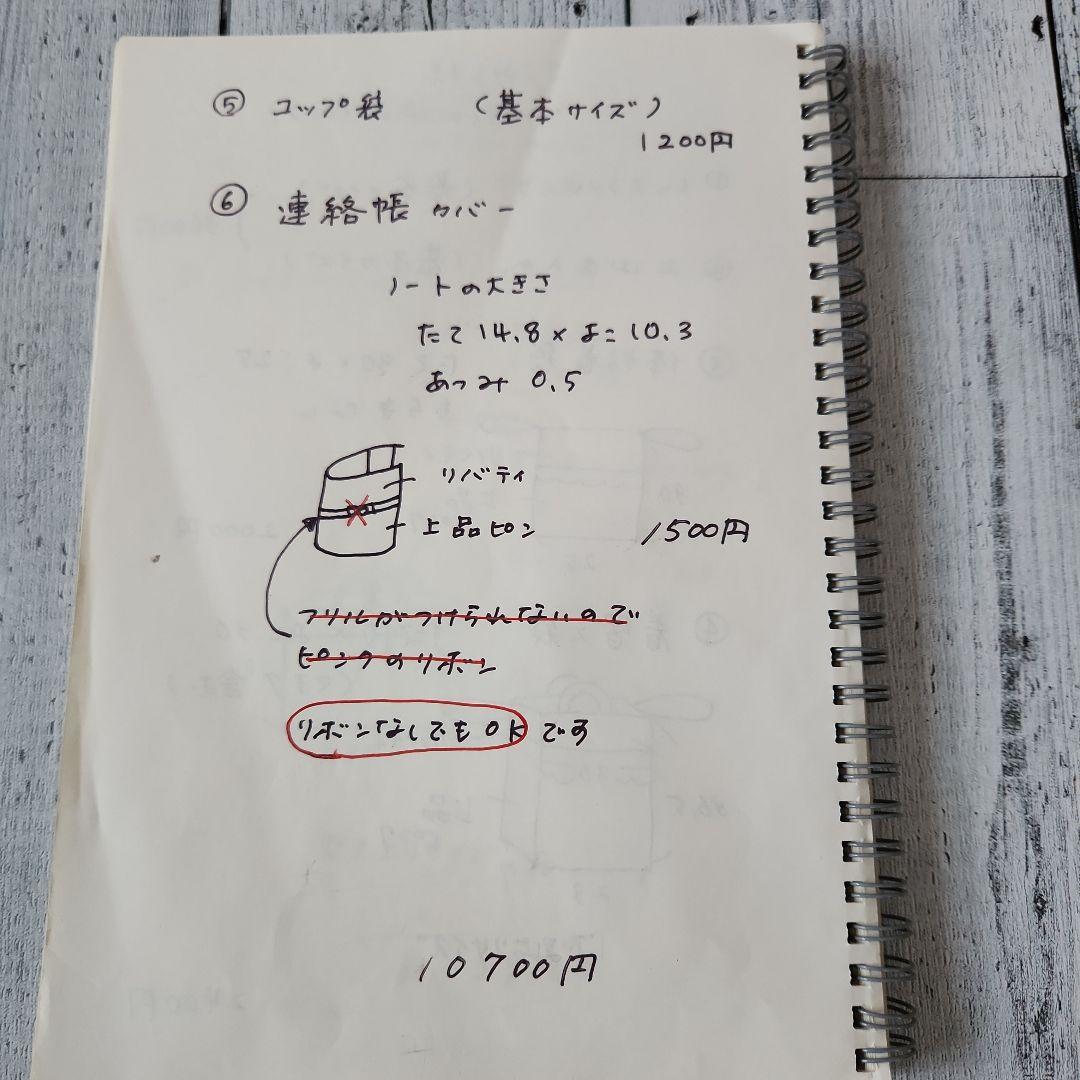 ⑤ コップ袋 （基本サイズ）
1200円
⑥ 連絡帳カバー
ノートの大きさ
たて 14.8 × よこ 10.3
あつみ 0.5
リバティ
上品ピン
1500円
フリルがつけられないので
ピンクのリボン
リボンなしでもOKです
10700円